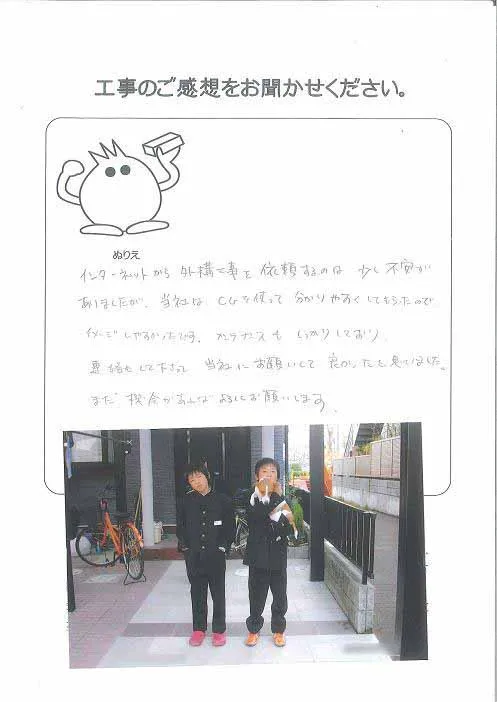 工事のご感想をお聞かせください。
ぬりえ
インターネットから外構工事を依頼するのは少し不安が
ありましたが、当社は、CGを使って分かりやすくしてもらったので
イメージしやすかったです。メンテナンスもしっかりしており、
連絡もして下さって当社にお願いして良かったと思いました。
また機会があればよろしくお願いします。